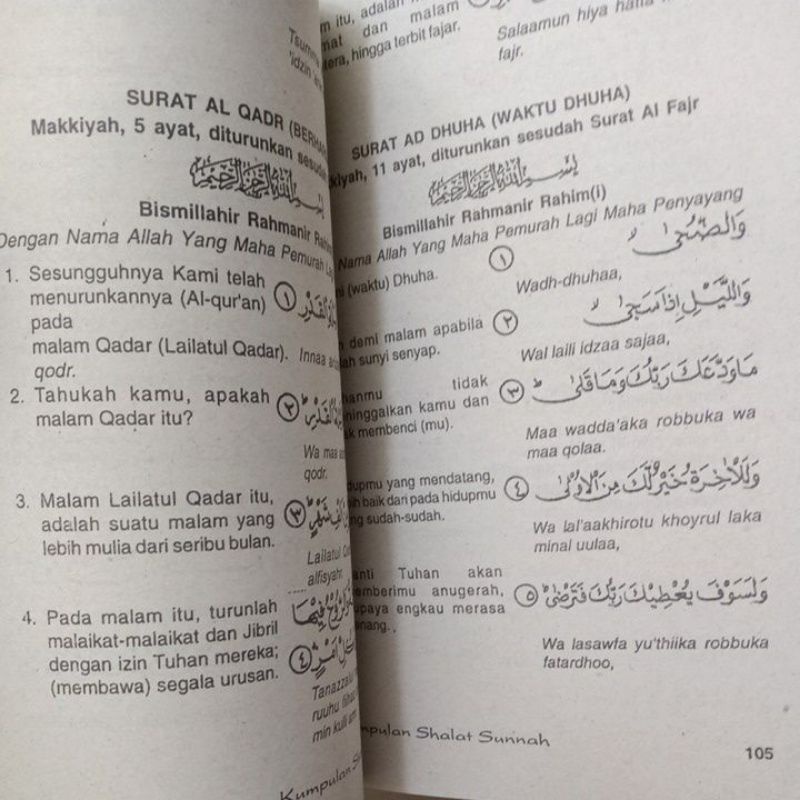 Tsumma
'idzin
SURAT AL QADR
Makkiyah, 5 ayat, diturunkan sesudah
بسم الله الرحمن الرحيم
Bismillahir Rahmanir
Dengan Nama Allah Yang Maha Pemurah
1. Sesungguhnya Kami telah
menurunkannya (Al-qur'an)
pada
malam Qadar (Lailatul Qadar). Innaa
qodr.
2. Tahukah kamu, apakah
malam Qadar itu?
٢
Wa maa
qodr.
3. Malam Lailatul Qadar itu,
adalah suatu malam yang
lebih mulia dari seribu bulan.
٣
Lailatul
alfisyahr
4. Pada malam itu, turunlah
malaikat-malaikat dan Jibril
dengan izin Tuhan mereka;
(membawa) segala urusan.
٤
ruuhu
min kulli
Kumpulan
itu, adalah
dan malam
hingga terbit fajar.
Salaamun hiya hatta
fajr.
SURAT AD DHUHA (WAKTU DHUHA)
11 ayat, diturunkan sesudah Surat Al Fajr
بسم الله الرحمن الرحيم
Bismillahir Rahmanir Rahim(i)
Nama Allah Yang Maha Pemurah Lagi Maha Penyayang
(waktu) Dhuha.
١ وَالضُّحٰىۙ
Wadh-dhuhaa,
demi malam apabila
sunyi senyap.
٢ وَالَّيْلِ اِذَا سَجٰىۙ
Wal laili idzaa sajaa,
tidak
kamu dan
membenci (mu).
٣ مَاوَدَّعَكَ رَبُّكَ وَمَا قَلٰىۗ
Maa wadda'aka robbuka wa
maa qolaa.
yang mendatang,
baik dari pada hidupmu
sudah-sudah.
٤ وَلَلْاٰخِرَةُ خَيْرٌ لَّكَ مِنَ الْاُوْلٰىۗ
Wa lal'aakhirotu khoyrul laka
minal uulaa,
Tuhan akan
anugerah,
engkau merasa
٥ وَلَسَوْفَ يُعْطِيْكَ رَبُّكَ فَتَرْضٰىۗ
Wa lasawfa yu'thiika robbuka
fatardhoo,
Shalat Sunnah
105